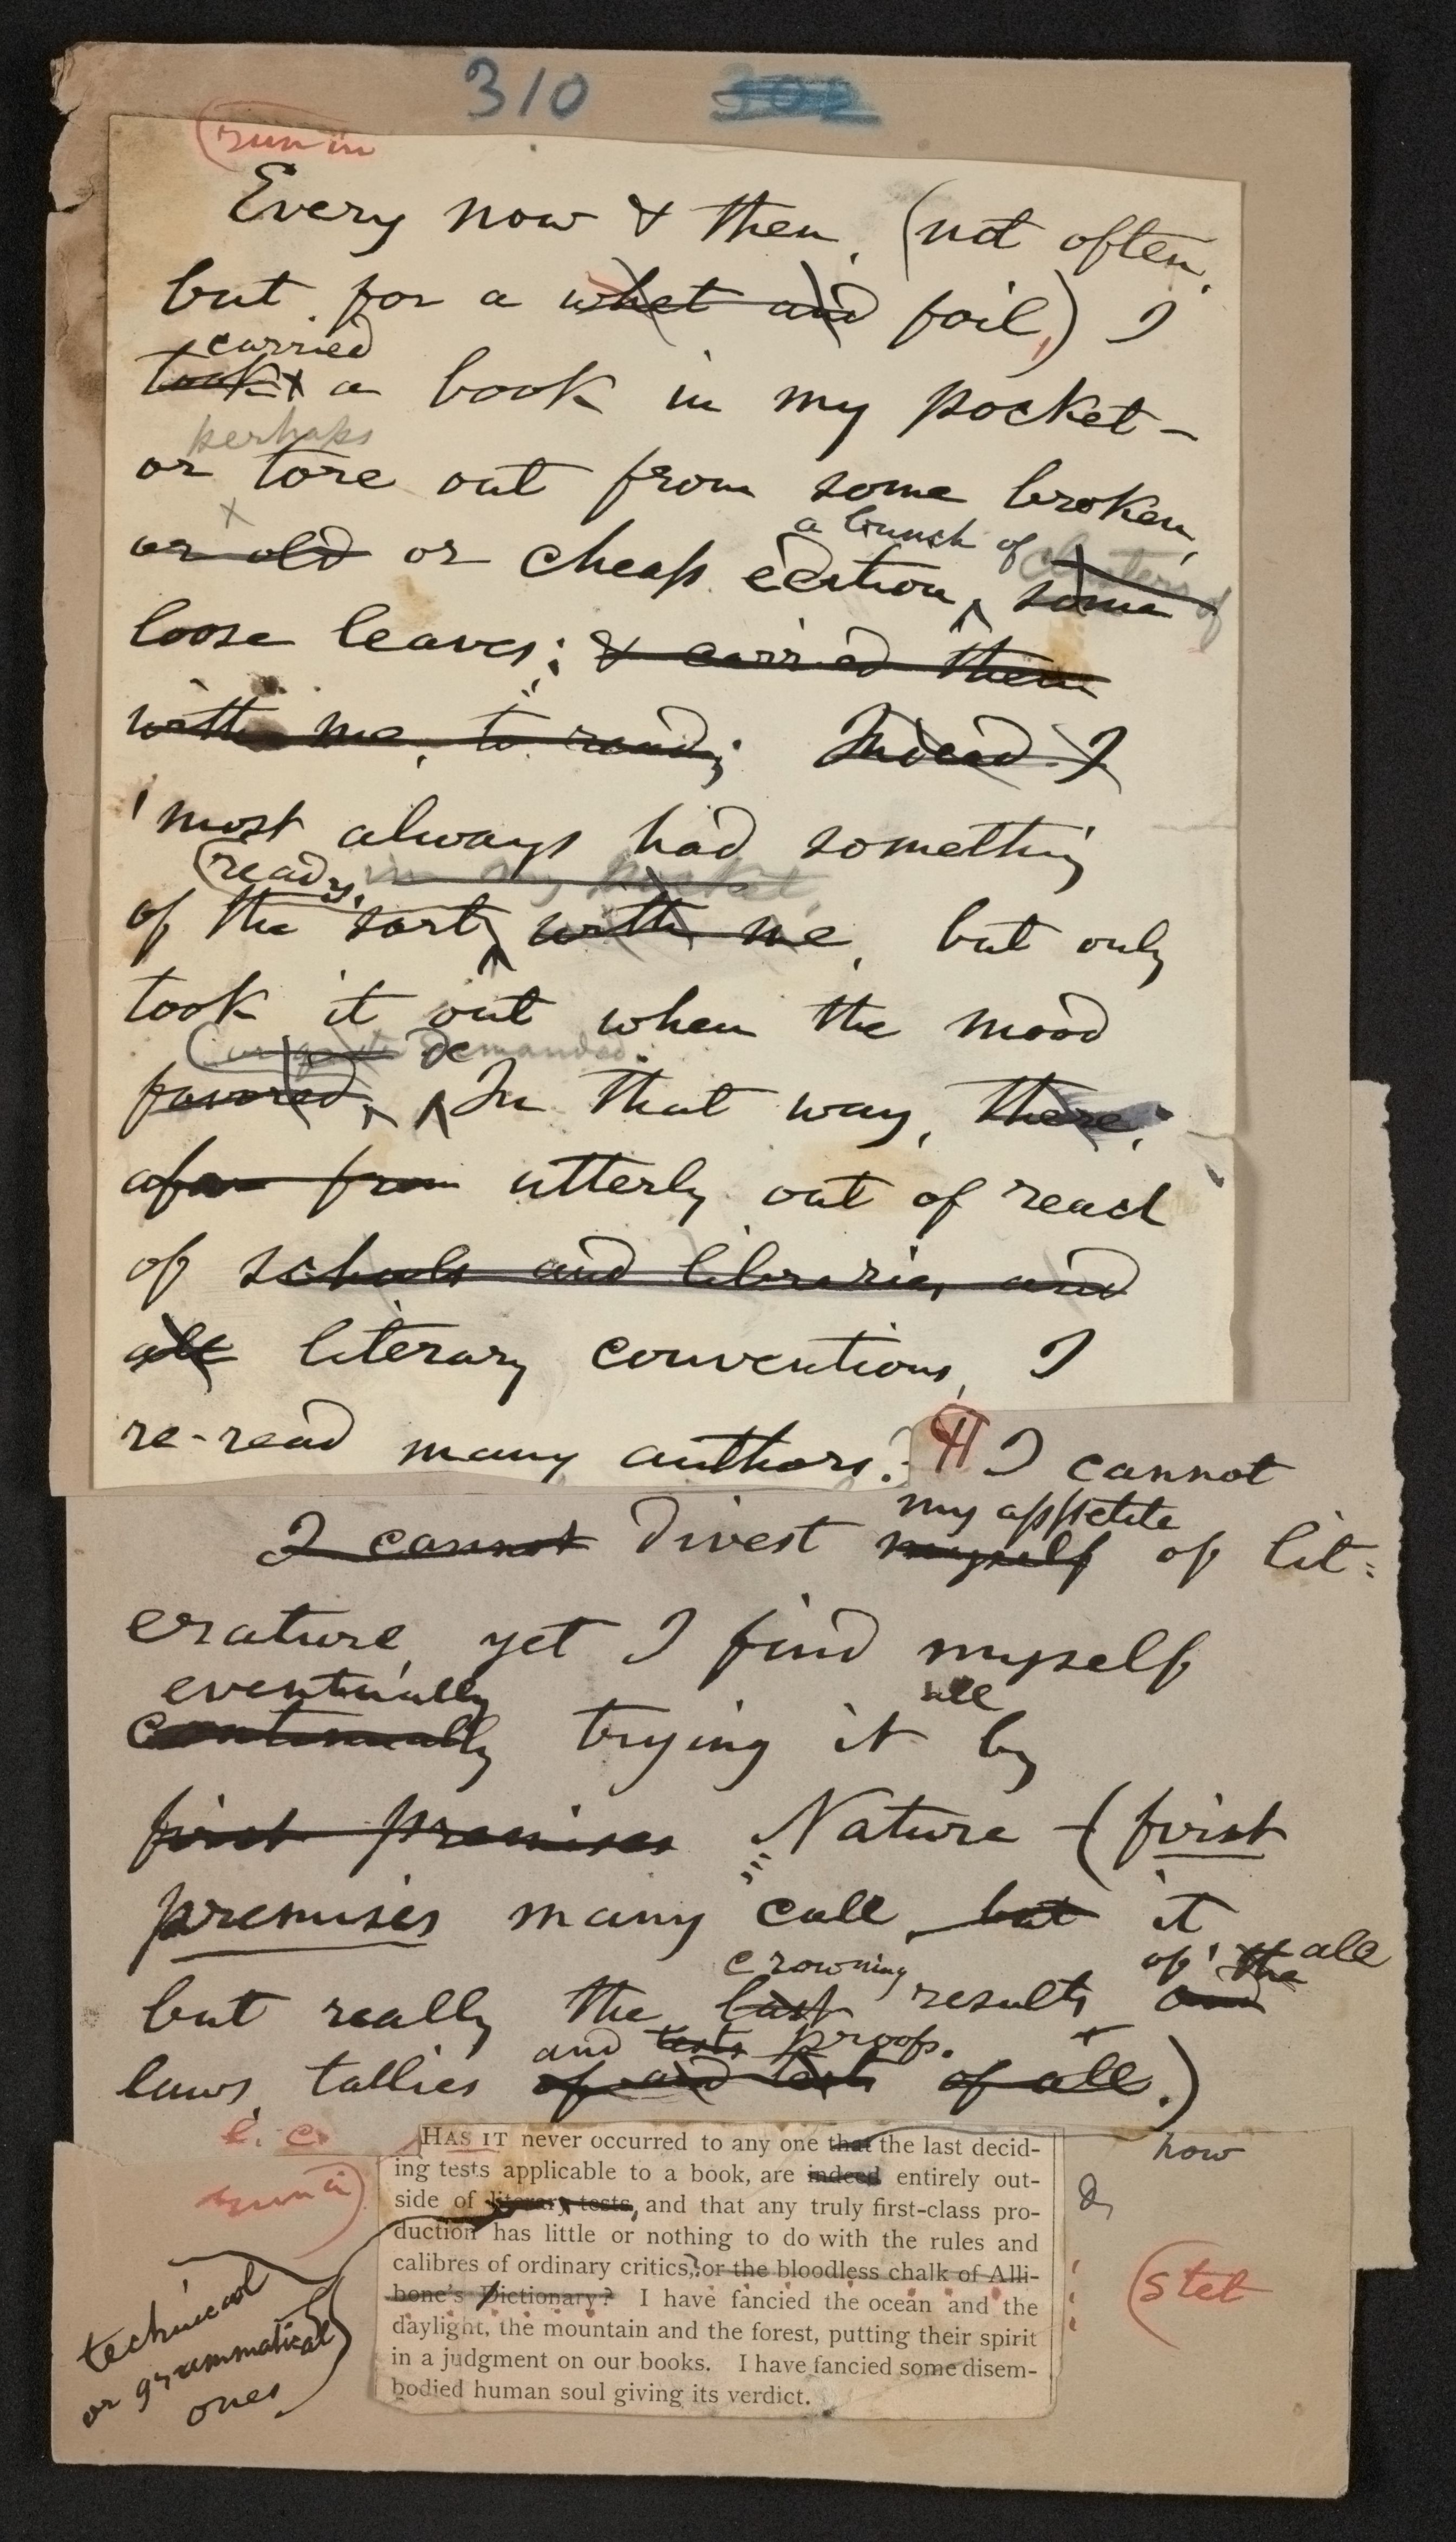 310 302
run in
Every now & then, (not often,
but for a whet and foil,) I
carried
took a book in my pocket –
perhaps
or tore out from some broken,
a bunch of clusters of
or old or cheap edition, some
loose leaves; & carried them
with me, to read; Indeed I
'most always had something
ready, in my pocket,
of the sort, with me, but only
took it out when the mood
demanded.
favored. In that way, there,
afar from utterly out of reach
of schools and libraries and
all literary conventions, I
re-read many authors. ¶ I cannot
my appetite
I cannot divest myself of lit=
erature, yet I find myself
eventually all
continually trying it by
first premises Nature – (first
premises many call, but it
crowning of the all
but really the last results and
and tests proofs.
laws, tallies of and tests of all.)
l. c. how
HAS IT never occurred to any one that the last decid-
ing tests applicable to a book, are indeed entirely out-
run in
side of literary tests, and that any truly first-class pro-
duction has little or nothing to do with the rules and
calibres of ordinary critics? or the bloodless chalk of Alli-
stet
bone's Dictionary? I have fancied the ocean and the
daylight, the mountain and the forest, putting their spirit
in a judgment on our books. I have fancied some disem-
bodied human soul giving its verdict.
technical
or grammatical
ones